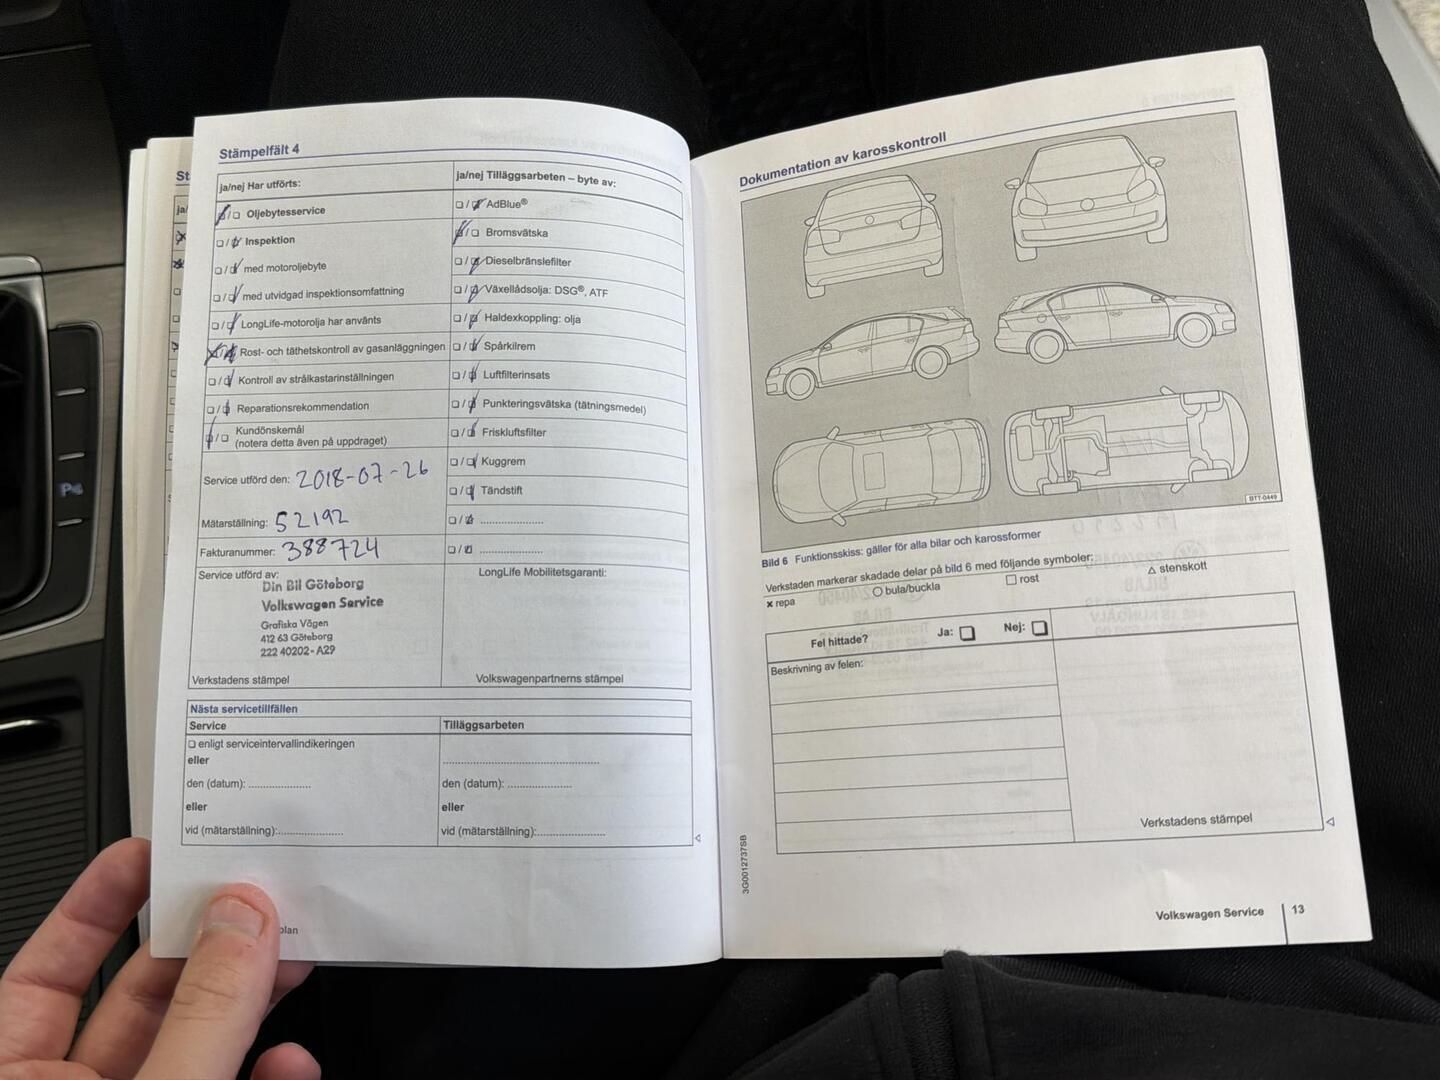 Stämpelfält 4
ja/nej Har utförts:
Oljebytesservice
Inspektion
med motoroljebyte
med utvidgad inspektionsomfattning
LongLife-motorolja har använts
Rost- och täthetskontroll av gasanläggningen
Kontroll av strålkastarinställningen
Reparationsrekommendation
Kundönskemål
(notera detta även på uppdraget)
Service utförd den: 2018-07-26
Mätarställning: 52192
Fakturanummer: 388724
Service utförd av:
Din Bil Göteborg
Volkswagen Service
Grafiska Vägen
412 63 Göteborg
222 40202-A29
Verkstadens stämpel
ja/nej Tilläggsarbeten – byte av:
AdBlue®
Bromsvätska
Dieselbränslefilter
Växellådsolja: DSG®, ATF
Haldexkoppling: olja
Spårkilrem
Luftfilterinsats
Punkteringsvätska (tätningsmedel)
Friskluftsfilter
Kuggrem
Tändstift
LongLife Mobilitetsgaranti:
Volkswagenpartnerns stämpel
Nästa servicetillfällen
Service
enligt serviceintervallindikeringen
eller
den (datum):
eller
vid (mätarställning):
Tilläggsarbeten
den (datum):
eller
vid (mätarställning):
plan
Dokumentation av karosskontroll
BTT-0449
Bild 6 Funktionsskiss: gäller för alla bilar och karossformer
Verkstaden markerar skadade delar på bild 6 med följande symboler:
× repa ○ bula/buckla □ rost △ stenskott
Fel hittade? Ja: Nej:
Beskrivning av felen:
Verkstadens stämpel
3G0012737SB
Volkswagen Service 13
P